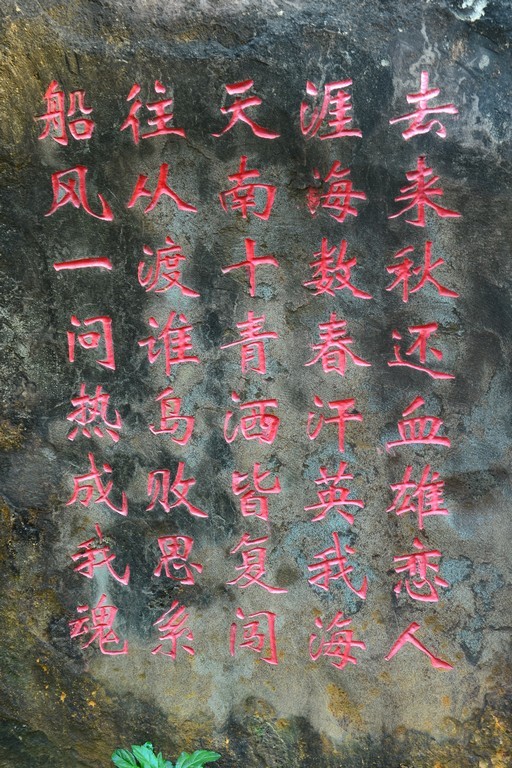 船往天涯去
风从南海来
一渡十数秋
问谁青春还
热岛洒汗血
成败皆英雄
我思复我恋
魂系闯海人